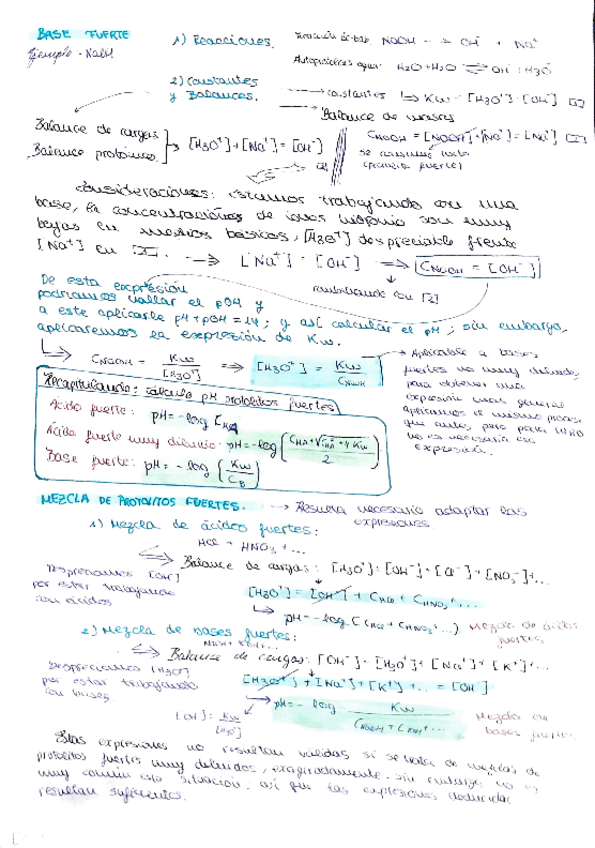 BASE FUERTE
Ejemplo - NaOH
1) Reacciones.
NaOH → OH⁻ + Na⁺
H₂O + H₂O ⇌ OH⁻ + H₃O⁺
2) Constantes y Balances.
→ constantes → Kw = [H₃O⁺]·[OH⁻]
Balance de masas
Balance de cargas
Balance protónico
→ [H₃O⁺]+[Na⁺]=[OH⁻]
C_NaOH = [NaOH]+[Na⁺]=[Na⁺]
(base fuerte)
[2]
Consideraciones: estamos trabajando con una
base, la concentraciones de iones hidronio son muy
bajas en medios básicos, [H₃O⁺] despreciable frente
[Na⁺] en
→ [Na⁺] = [OH⁻] ⇒ C_NaOH = [OH⁻]
combinando con [2]
De esta expresión
podríamos hallar el pOH y
a este aplicarle pH+pOH=14; y así calcular el pH; sin embargo,
aplicaremos la expresión de Kw.
C_NaOH = Kw/[H₃O⁺] ⇒ [H₃O⁺] = Kw/C_NaOH
→ Aplicable a bases
fuertes no muy diluidas,
para obtener una
expresión más general
aplicamos el mismo proceso
que antes, pero para
no es necesaria esa
expresión.
Recapitulando: cálculo pH protolitos fuertes
Ácido fuerte: pH=-log C_HA
Ácido fuerte muy diluido: pH=-log((C_HA+√(C²_HA+4Kw))/2)
Base fuerte: pH=-log(Kw/C_B)
MEZCLA DE PROTOLITOS FUERTES. → necesario adaptar las
expresiones.
1) Mezcla de ácidos fuertes:
HCl + HNO₃ + ...
Balance de cargas: [H₃O⁺]=[OH⁻]+[Cl⁻]+[NO₃⁻]+...
Despreciamos [OH⁻]
por estar trabajando
con ácidos
[H₃O⁺] = [OH⁻] + C_HCl + C_HNO₃ + ...
→ pH=-log (C_HCl + C_HNO₃ + ...) Mezcla de ácidos
fuertes
2) Mezcla de bases fuertes:
NaOH + KOH + ...
Balance de cargas: [OH⁻] = [H₃O⁺]+[Na⁺]+[K⁺]+...
Despreciamos [H₃O⁺]
por estar trabajando
con bases.
[H₃O⁺] + [Na⁺] + [K⁺] + ... = [OH⁻]
[OH⁻] = Kw/[H₃O⁺]
→ pH=-log Kw/(C_NaOH + C_KOH + ...)
Mezcla de
bases fuertes
Estas expresiones no resultan válidas si se trata de mezclas de
protolitos fuertes muy diluidos, exageradamente, sin embargo no es
muy común esta situación, así que las expresiones deducidas
resultan suficientes.